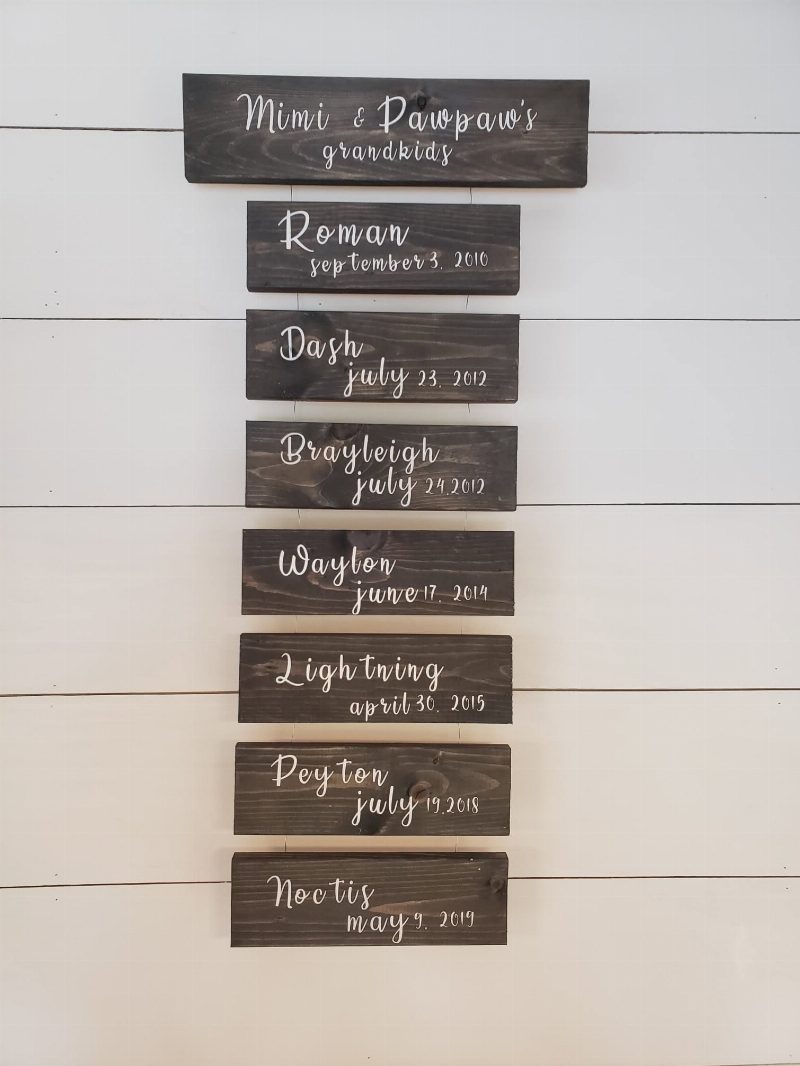 Mimi & Pawpaw's
grandkids
Roman
september 3, 2010
Dash
july 23, 2012
Brayleigh
july 24, 2012
Waylon
june 17, 2014
Lightning
april 30, 2015
Peyton
july 19, 2018
Noctis
may 9, 2019